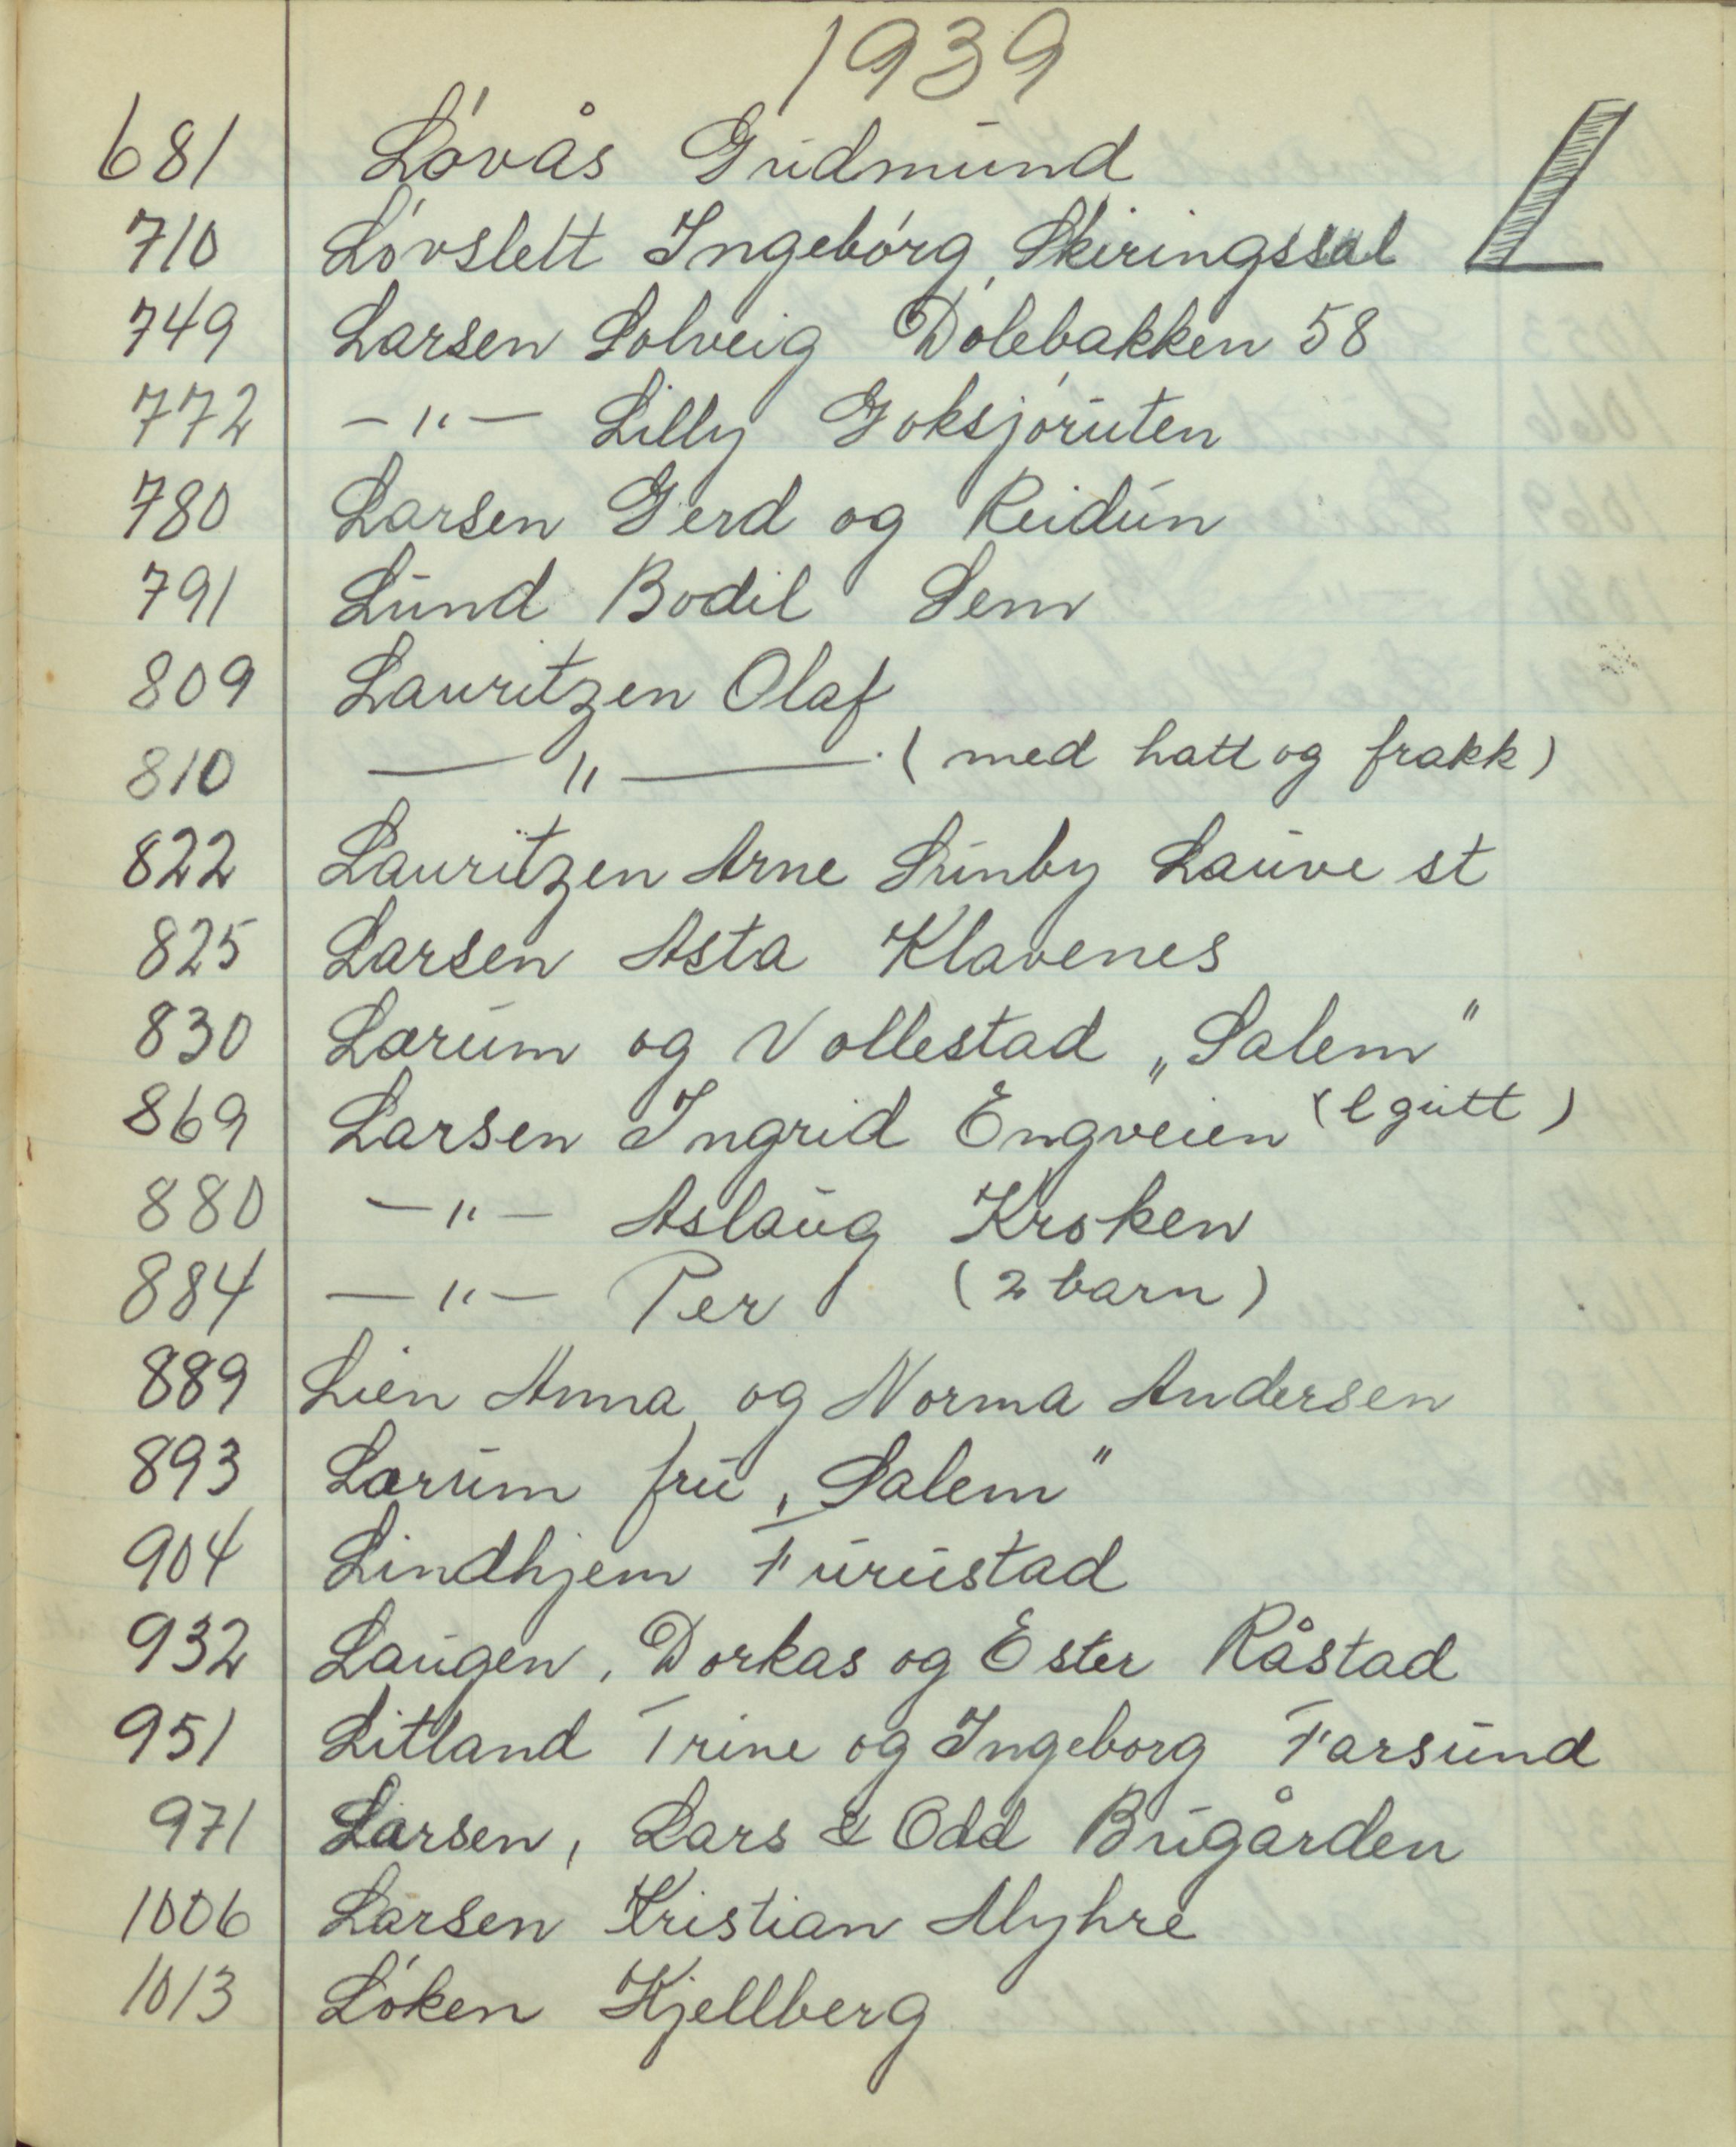 1939
L
681 Lövås Gudmund
710 Lóvslett Ingebórg, Skiringssal
749 Larsen Solveig Dólebakken 58
772 —"— Lilly Goksjóruten
780 Larsen Gerd og Reidun
791 Lund Bodil Sem
809 Lauritzen Olaf
810 —"— (med hatt og frakk)
822 Lauritzen Arne Sunby Lauve st
825 Larsen Asta Klavenes
830 Lærum og Vollestad „Salem"
869 Larsen Ingrid Engveien (l gutt)
880 —"— Aslaug Kroken
884 —"— Per (2 barn)
889 Lien Anna og Norma Andersen
893 Lærum fru „Salem"
904 Lindhjem Furustad
932 Laugen, Dorkas og Ester Råstad
951 Litland Trine og Ingeborg Farsund
971 Larsen, Lars & Odd Bugården
1006 Larsen Kristian Myhre
1013 Lóken Kjellberg